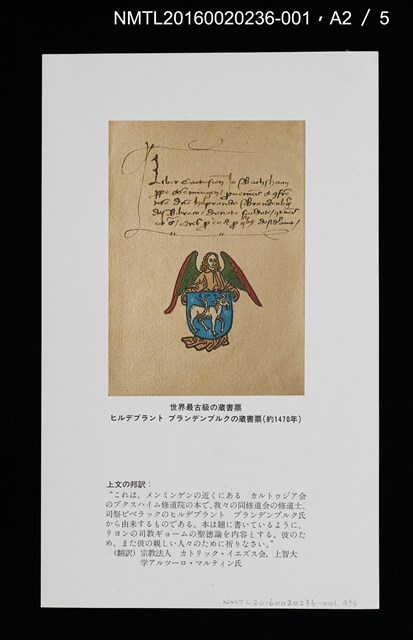 NMTL20160020236-001，A2 / 5
Liber Cartusien
世界最古級の蔵書票
ヒルデブラント ブランデンブルクの蔵書票(約1470年)
上文の邦訳：
“これは、メンミンゲンの近くにある カルトゥジア会
のブクスハイム修道院の本で、我々の同修道会の修道士、
司祭ビベラックのヒルデブラント ブランデンブルク氏
から由来するものである。本は題に書いているように、
リヨンの司教ギョームの聖徳論を内容とする。彼のた
め、また彼の親しい人々のために祈りなさい。”
(翻訳) 宗教法人 カトリック・イエズス会，上智大
学アルツーロ・マルティン氏
NMTL20160020236-001,